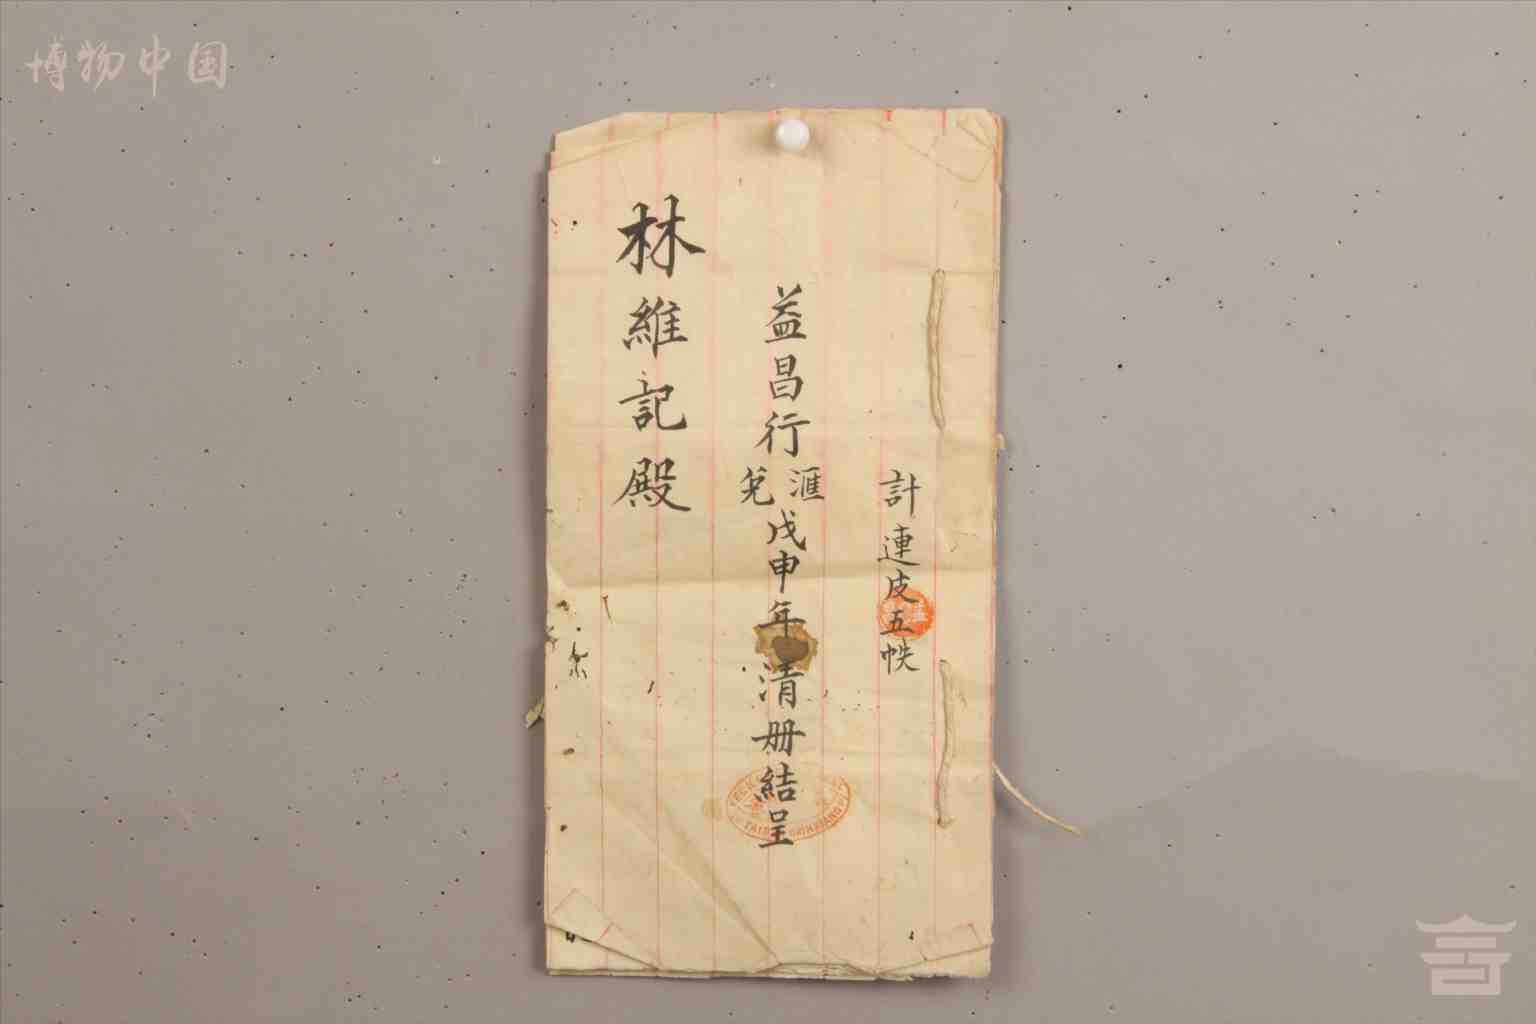 博物中国
計連皮五帙
益昌行匯兌戊申年清册結呈
林維記殿